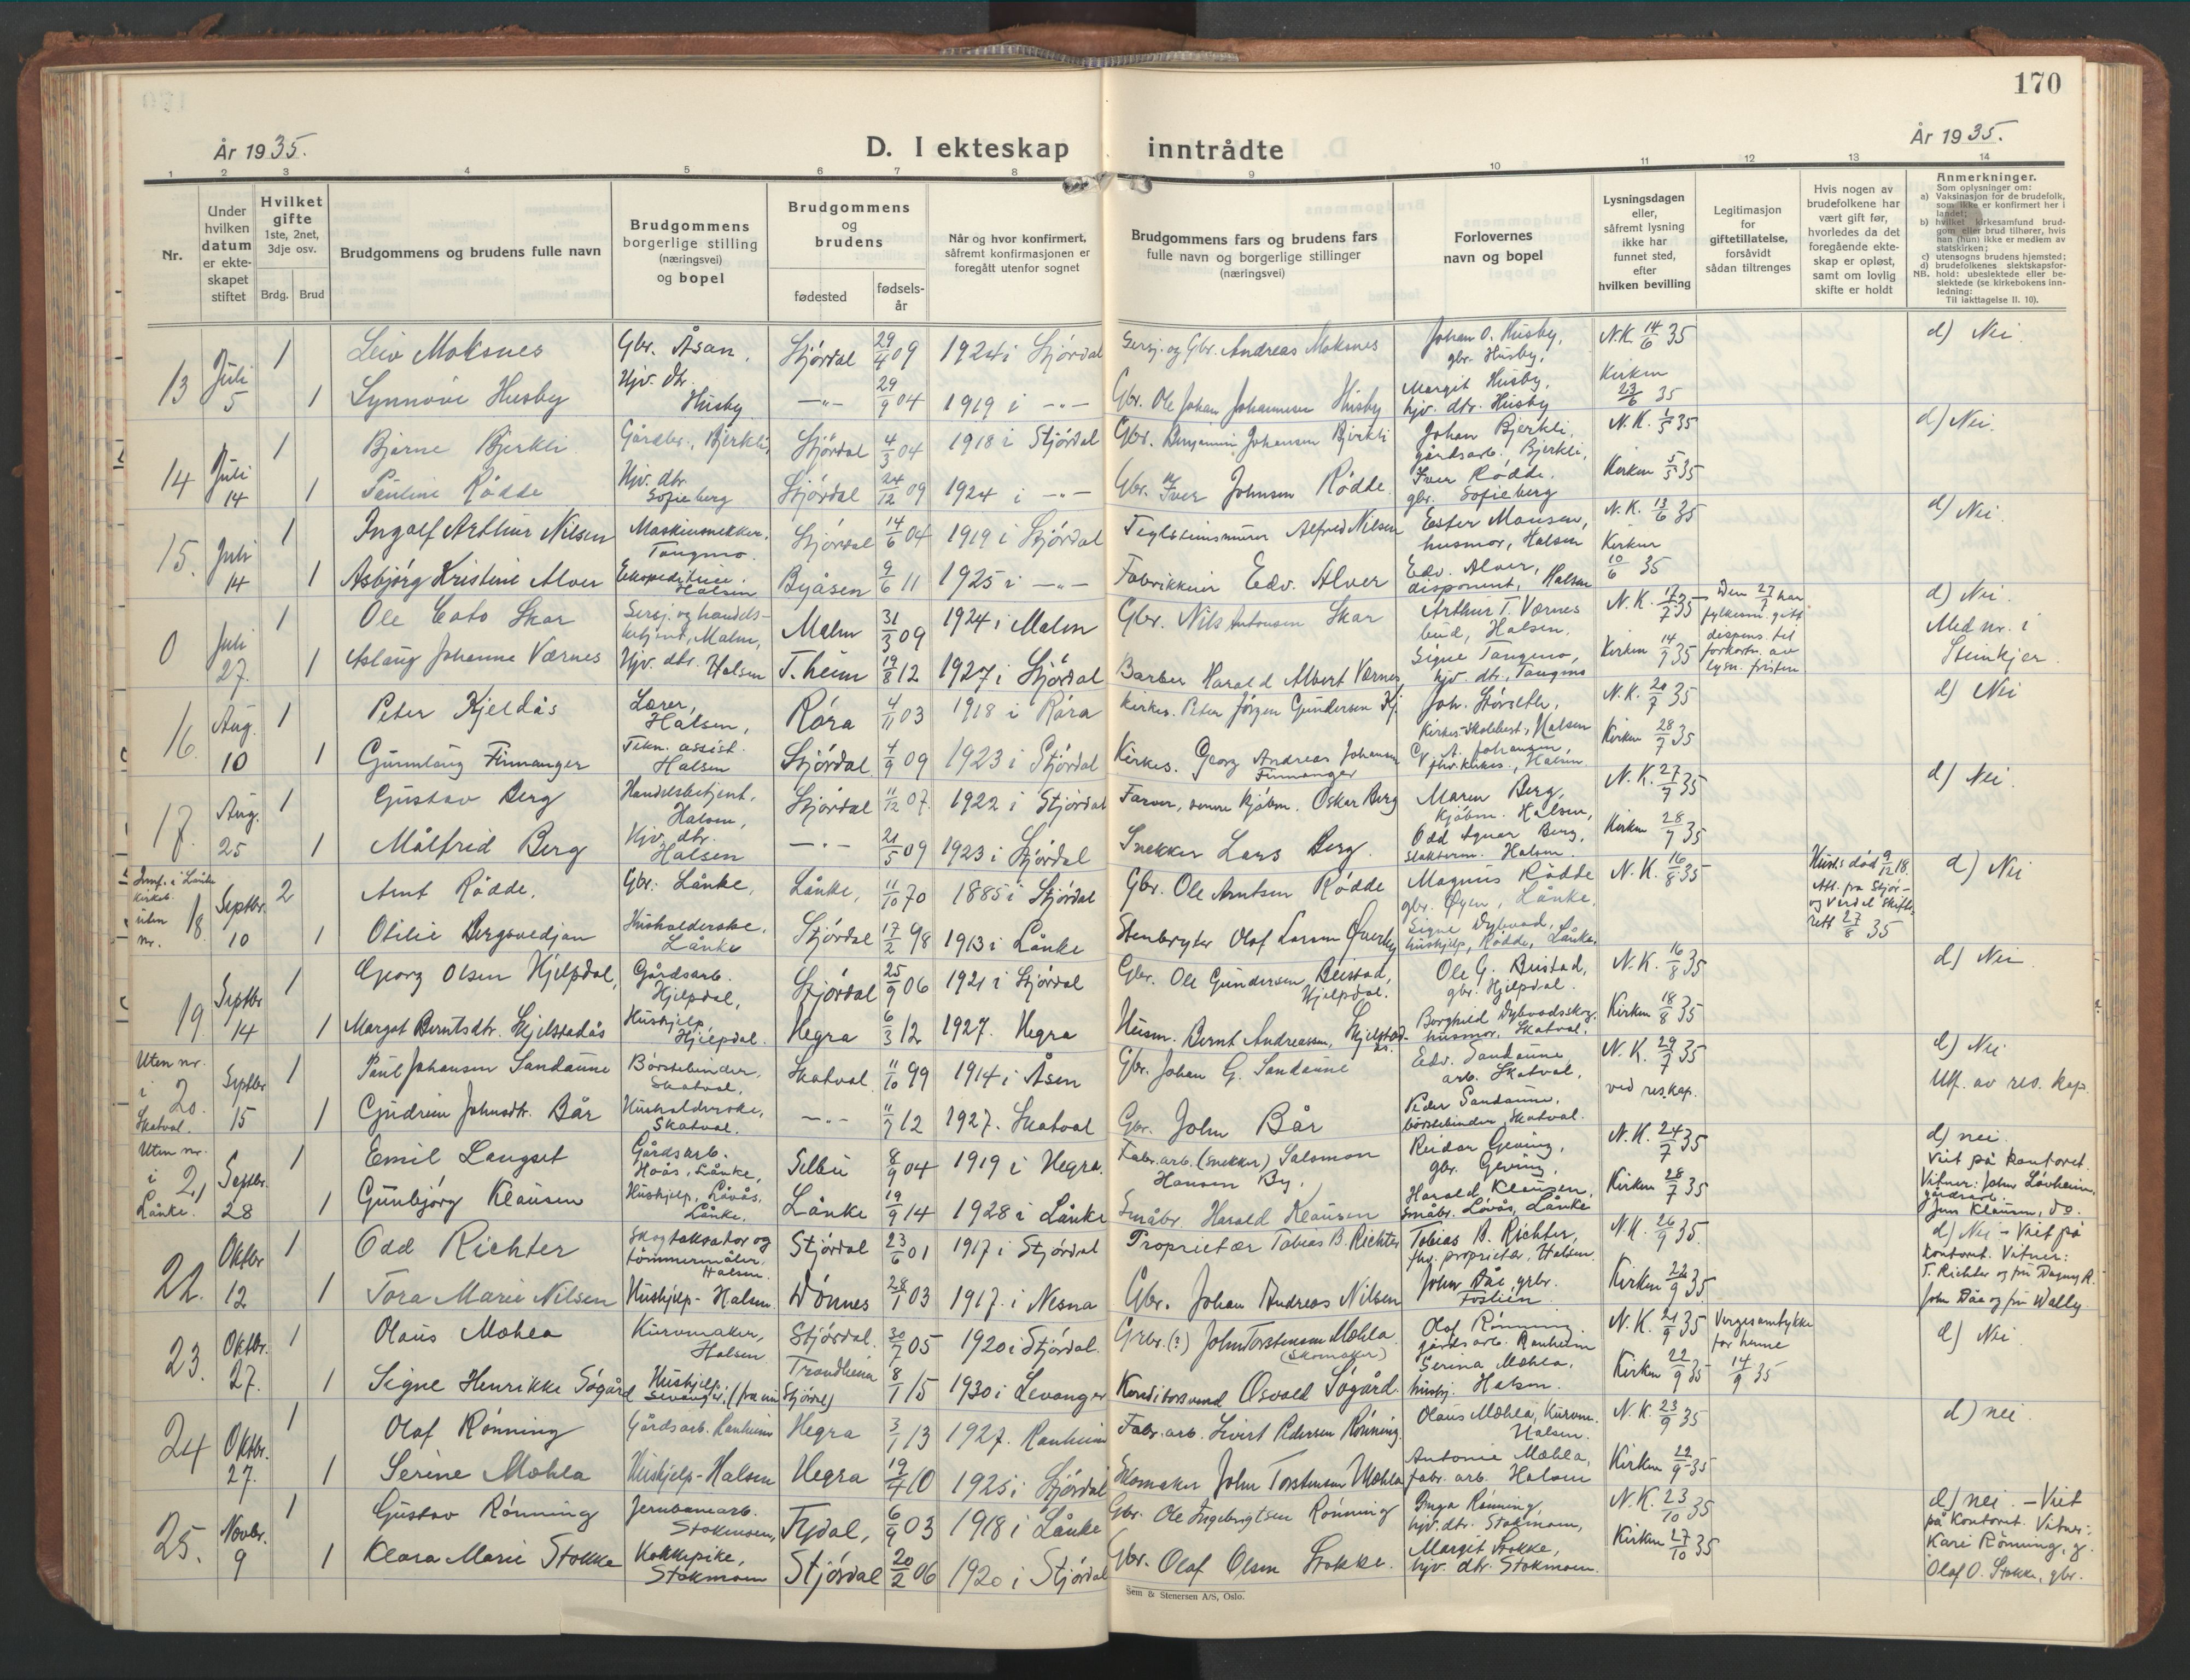 170
År 1935.
D. I ekteskap inntrådte
År 1935.
1 2 3 4 5 6 7 8 9 10 11 12 13 14
Nr.
Under hvilken datum er ekteskapet stiftet
Hvilket gifte
1ste, 2net, 3dje osv.
Brdg. Brud
Brudgommens og brudens fulle navn
Brudgommens borgerlige stilling (næringsvei) og bopel
Brudgommens og brudens
fødested
fødselsår
Når og hvor konfirmert, såfremt konfirmasjonen er foregått utenfor sognet
Brudgommens fars og brudens fars fulle navn og borgerlige stillinger (næringsvei)
Forlovernes navn og bopel
Lysningsdagen eller, såfremt lysning ikke har funnet sted, efter hvilken bevilling
Legitimasjon for giftetillatelse, forsåvidt sådan tiltrenges
Hvis nogen av brudefolkene har vært gift før, hvorledes da det foregående ekteskap er opløst, samt om lovlig skifte er holdt
Anmerkninger.
Som oplysninger om:
a) Vaksinasjon for de brudefolk, som ikke er konfirmert her i landet;
b) hvilket kirkesamfund brudgom eller brud tilhører, hvis han (hun) ikke er medlem av statskirken;
c) utensogns brudens hjemsted;
d) brudefolkenes slektskapsforhold: ubeslektede eller beslektede (se kirkebokens innledning:
NB. Til iakttagelse II. 10).
13 Juli 5 1 Leiv Moksnes Gbr. Åsan, Stjørdal 29/4 09 1924 i Stjørdal Gersj. og Gbr. Andreas Moksnes Johan O. Husby, gbr. Husby, N.K. 14/6 35 d) Nei
1 Synnøve Husby Hjv. dtr. Husby -"- 29/9 04 1919 i -"- Gbr. Ole Johan Johannesen Husby Margit Husby, hjv. dtr. Husby Kirken 23/6 35
14 Juli 14 1 Bjarne Bjerkli Gårdbr., Bjerkli, Stjørdal 4/3 04 1918 i Stjørdal Gbr. Benjamin Johansen Bjerkli Johan Bjerkli, gårdsarb. Bjerkli, N.K. 1/5 35 d) Nei.
1 Pauline Rødde Hjv. dtr. Sofieberg Stjørdal 24/12 09 1924 i -"- Gbr. Iver Johnsen Rødde Iver Rødde. gbr. Sofieberg Kirken 5/5 35
15. Juli 14 1 Ingolf Arthur Nilsen Maskinsnekker. Tangmo. Stjørdal 14/6 04 1919 i Stjørdal Teglsteinsmurer Alfred Nilsen Ester Mausen, husmor, Halsen N.K. 13/6 35 d) Nei
1 Asbjørg Kristine Alver Ekspeditrise. Halsen Byåsen 9/6 11 1925 i -"- Fabrikkeier Edv. Alver Edv. Alver, disponent, Halsen Kirken 10/6 35
0 Juli 27. 1 Ole Cato Skar Gersj. og handelsbetjent, Malm, Malm 31/3 09 1924 i Malm Gbr. Nils Antonsen Skar Arthur T. Værnes bud, Halsen. N.K. 17/7 35 Den 27/7 har fylkesm. gitt dispens. til forkortn. av lysn. fristen d) Nei. Med nr. i Steinkjer.
1 Aslaug Johanne Værnes Hjv. dtr. Halsen T.heim 19/8 12 1927 i Stjørdal Barber Harald Albert Værnes Signe Tangmo, hjv. dtr. Tangmo Kirken 14/7 35
16. Aug. 10 1 Peter Kjeldås Lærer, Halsen, Røra 4/11 03 1918 i Røra Kirkes. Peter Jørgen Gundersen Kj. Joh. Størseth, Kirkes.-skolebest., Halsen N.K. 20/7 35 d) Nei
1 Gunnlaug Finnanger Tekn. assist. Halsen Stjørdal 4/9 09 1923 i Stjørdal Kirkes. Georg Andreas Johansen Finnanger G. A. Johansen, fhv. kirkes., Halsen Kirken 28/7 35
17. Aug. 25 1 Gustav Berg Handelsbetjent, Halsen, Stjørdal 11/12 07. 1922 i Stjørdal Farver, senere kjøbm. Oskar Berg Maren Berg, kjøbm. Halsen, N.K. 27/7 35 d) Nei.
1 Målfrid Berg Hjv. dtr. Halsen -"- 21/5 09 1923 i Stjørdal Snekker Lars Berg. Odd Agnar Berg, slakterm. Halsen. Kirken 28/7 35
Innf. i Lånke kirkeb. uten nr. 18. Septbr. 10 2 Arnt Rødde. Gbr. Lånke, Lånke, 11/10 70 1885 i Stjørdal Gbr. Ole Arntsen Rødde Magnus Rødde gbr. Øyen, Lånke. N.K. 16/8 35 Hustr. død 9/12 18. Att. fra Stjør- og Verdal skifterett 27/8 35 d) Nei
1 Otilie Bergsvedjan Husholderske. Lånke Stjørdal 17/2 98 1913 i Lånke Stenbryter Olaf Larsen Øverby Signe Dybvad, hushjelp, Rødde, Lånke.
19. Septbr 14 1 Georg Olsen Hjelpdal, Gårdsarb. Hjelpdal, Stjørdal 25/9 06 1921 i Stjørdal Gbr. Ole Gundersen Beistad, Hjelpdal. Ole G. Beistad, gbr. Hjelpdal. N.K. 16/8 35 d) Nei
1 Margot Berntsdtr. Skjelstadås Hushjelp, Hjelpdal. Hegra 6/3 12 1927. Hegra Husm. Bernt Andreassen, Skjelstadås. Borghild Dybvadsskog, husmor, Skatval. Kirken 18/8 35
Uten nr. i Skatval. 20. Septbr 15 1 Paul Johansen Sandaune Børstebinder, Skatval, Skatval 11/10 99 1914 i Åsen Gbr. Johan G. Sandaune Edv. Sandaune, arb. Skatval, N.K. 29/7 35 d) Nei Utf. av res. kap.
1 Gudrun Johnsdtr. Bår Husholderske, Skatval. -"- 11/7 12 1927. Skatval Gbr. John Bår Peder Sandaune, børstebinder, Skatval. ved res.kap.
Uten nr. i Lånke. 21 Septbr. 28 1 Emil Langset Gårdsarb. Hoås, Lånke, Selbu 8/9 04 1919 i Hegra. Fabr.arb. (snekker) Salomon Hansen By, Reidar Geving, gbr. Geving, N.K. 24/7 35 d) nei. Viet på kontoret. Vitner: John Lovheim, gårdsarb. Jens Klausen, do.
1 Gunbjørg Klausen Hushjelp, Løvås, Lånke. Lånke 19/9 14 1928 i Lånke Småbr. Harald Klausen Harald Klausen, Småbr. Løvås, Lånke Kirken 28/7 35
22. Oktbr 12 1 Odd Richter Skogtaksator og tømmermåler. Halsen. Stjørdal 23/6 01 1917 i Stjørdal Proprietær Tobias B. Richter Tobias B. Richter, fhv. proprietær, Halsen. N.K. 26/9 35. d) Nei - Viet på kontoret. Vitner: T. Richter og fru Dagny R. John Dåe og fru Wally.
1 Tora Marie Nilsen Hushjelp - Halsen Dønnes 28/1 03 1917. i Nesna Gbr. Johan Andreas Nilsen John Dåe, grbr. Foslien Kirken 22/9 35
23. Oktbr. 27. 1 Olaus Mæhla Kurvmaker, Halsen Stjørdal 30/7 05 1920 i Stjørdal. Grbr. (?) John Torstensen Mæhla (Skomaker) Olaf Rønning. gårdsarb. Ranheim N.K. 21/9 35 Vergesamtykke for henne 14/9 35 d) Nei
1 Signe Henrikke Søgård Hushjelp. Levanger, (fra nu Stjørdal) Trondheim 8/1 15 1930 i Levanger Konditorsvend Osvald Søgård. Serina Mæhla, hushj. Halsen. Kirken 22/9 35
24 Oktbr. 27. 1 Olaf Rønning Gårdsarb. Ranheim Hegra 3/1 13 1927. Ranheim Fabr.arb. Sivert Pedersen Rønning. Olaus Mæhla, Kurvm. Halsen. N.K. 23/9 35 d) nei.
1 Serine Mæhla Hushjelp - Halsen Hegra 19/4 10 1925 i Stjørdal Skomaker John Torstensen Mæhla Antonie Mæhla, fabr. arb. Halsen Kirken 22/9 35
25. Novbr. 9 1 Gustav Rønning Jernbanearb. Stokmoen, Tydal, 6/9 03 1918 i Lånke Gbr. Ole Ingebrigtsen Rønning Inga Rønning, hjv. dtr. Stokmoen, N.K. 23/10 35 d) nei. - Viet på kontoret. Vitner: Kåre Rønning, g. Olaf O. Stokke, gbr.
1 Klara Marie Stokke Kokkepike, Stokmoen Stjørdal 20/2 06 1920 i Stjørdal Gbr. Olaf Olsen Stokke. Margit Stokke, hjv. dtr. Stokmoen. Kirken 27/10 35
Sem & Stenersen A/S, Oslo.